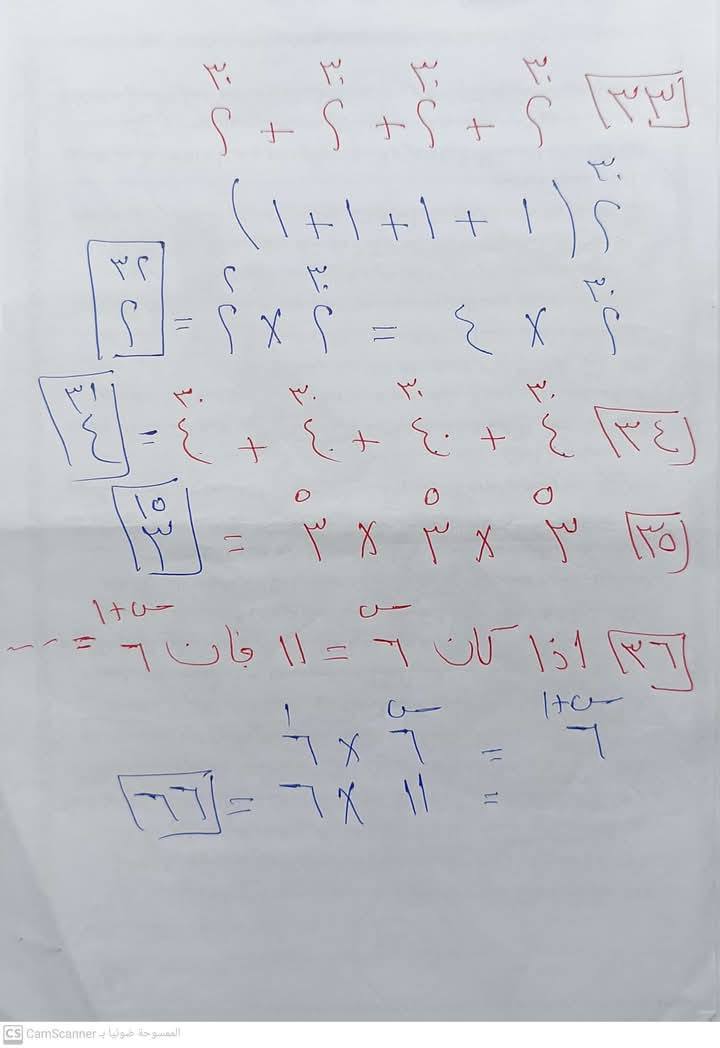 ٣٣ ٢^٣٠ + ٢^٣٠ + ٢^٣٠ + ٢^٣٠
٢^٣٠ (١ + ١ + ١ + ١)
٢^٣٠ × ٤ = ٢^٣٠ × ٢^٢ = ٢^٣٢
٣٤ ٤^٣٠ + ٤^٣٠ + ٤^٣٠ + ٤^٣٠ = ٤^٣١
٣٥ ٣^٥ × ٣^٥ × ٣^٥ = ٣^١٥
٣٦ اذا كان ٦^س = ١١ فان ٦^س+١ = ...
٦^س+١ = ٦^س × ٦^١
= ١١ × ٦ = ٦٦
CS CamScanner الممسوحة ضوئيا بـ